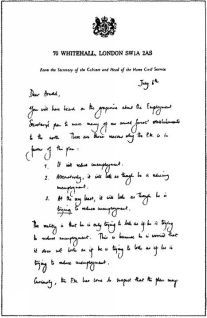 70 WHITEHALL, LONDON SW1A 2AS
From the Secretary of the Cabinet and Head of the Home Civil Service
July 6th
Dear
You will have heard on the grapevine about the Employment
Secretary's plan to move many of our armed forces' establishments
to the north. There are three reasons why the P.M. is in
favour of the plan:
1. It will reduce unemployment.
2. Alternatively, it will look as though he is reducing
unemployment.
3. At the very least, it will look as though he is
trying to reduce unemployment.
The reality is that he is only trying to look as if he is trying
to reduce unemployment. This is because he is worried that
it does not look as if he is trying to look as if he is
trying to reduce unemployment.
Curiously, the P.M. has come to suspect that the plan may